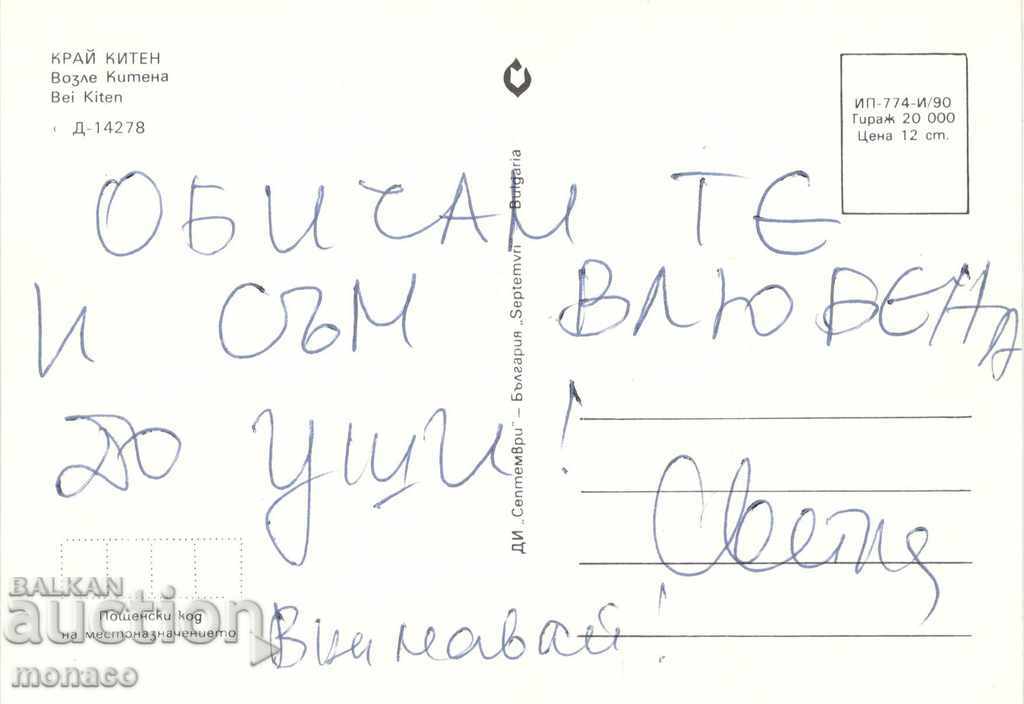 КРАЙ КИТЕН
Возле Китена
Bei Kiten
Д-14278
ИП-774-И/90
Тираж 20 000
Цена 12 ст.
ДИ „Септември" – България „Septemvri" Bulgaria
ОБИЧАМ ТЕ
И СЪМ ВЛЮБЕНА
ДО УШИ!
Светла
Внимавай!
Пощенски код
на местоназначението
BALKAN
auction
monaco